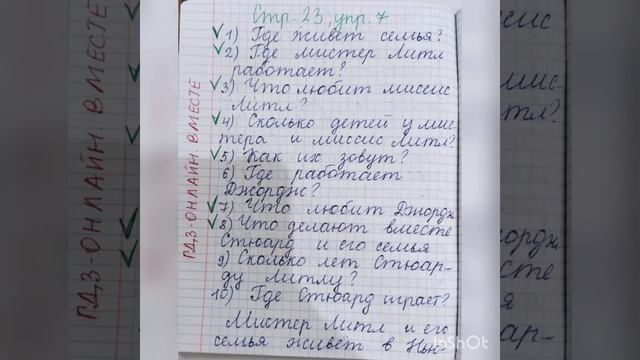 Стр. 23, упр. 7
1) Где живёт семья?
2) Где мистер Литл
работает?
3) Что любит миссис
Литл?
4) Сколько детей у мис
тера и миссис Литл?
5) Как их зовут?
6) Где работает
Джордж?
7) Что любит Джордж
8) Что делают вместе
Стюард и его семья
9) Сколько лет Стюар-
ду Литлу?
10) Где Стюард играет?
Мистер Литл и его
семья живёт в Нью-
ПДЗ-ОНЛАЙН. ВМЕСТЕ
InShOt